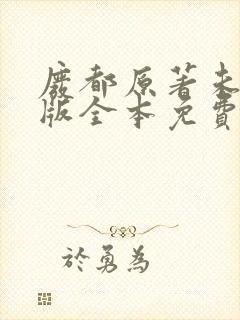 廢都原著未
版全本免費
於勇為